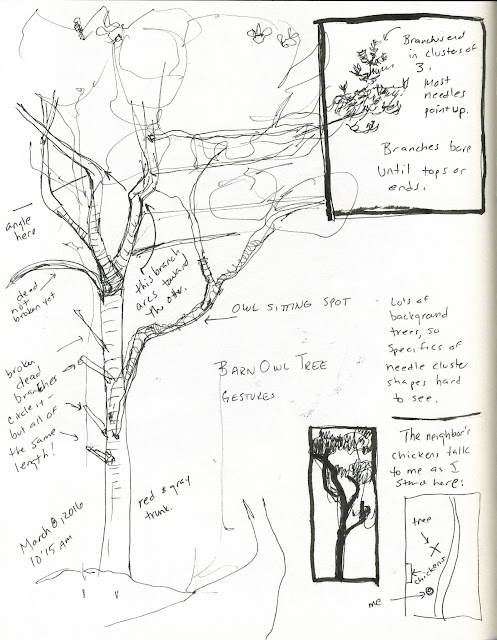 Branches end
in clusters of
3.
Most
needles
point up.
Branches bare
until tops or
ends.
angle
here
this branch
arcs toward
the other.
dead
not
broken yet
OWL SITTING SPOT
Lots of
background
trees, so
specifics of
needle cluster
shapes hard
to see.
broken
dead
branches
circle it –
but all of
the same
length!
BARN OWL TREE
GESTURES
The neighbor's
chickens talk
to me as I
stand here:
red & gray
trunk.
tree
chickens
me
March 8, 2016
10:15 AM